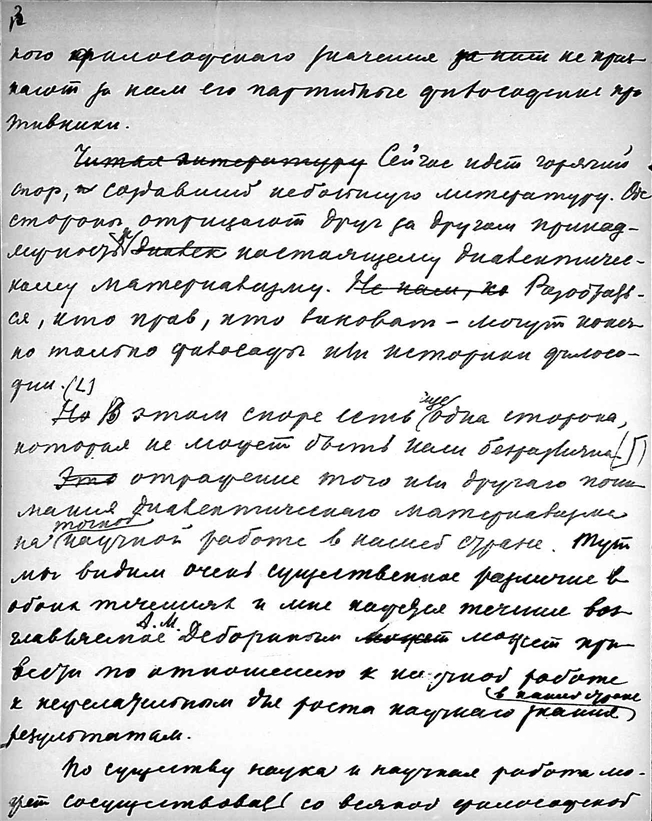 3
ного философского значения ~~за ним~~ не приз-
нают за ним его партийные философские про
тивники.
~~Читая литературу~~ Сейчас идет горячий
спор, создавший небольшую литературу. Обе
стороны отрицают друг за другом принад-
лежность к ~~диалек~~ настоящему диалектичес-
кому материализму. ~~Не нам, ко~~ Разобрать-
ся, кто прав, кто виноват – могут конеч-
но только философы или историки филосо-
фии.
~~Но~~ В этом споре есть еще одна сторона,
которая не может быть нам безразлична
~~Это~~ отражение того или другого пони
мания диалектического материализма
на точной научной работе в нашей стране. Тут
мы видим очень существенное различие в
обоих течениях и мне кажется течение воз
главляемое А.М. Дебориным ~~может~~ может при
вести по отношению к научной работе
к нежелательным для роста научного знания в нашей стране
результатам.
По существу наука и научная работа мо-
жет сосуществовать со всякой философской